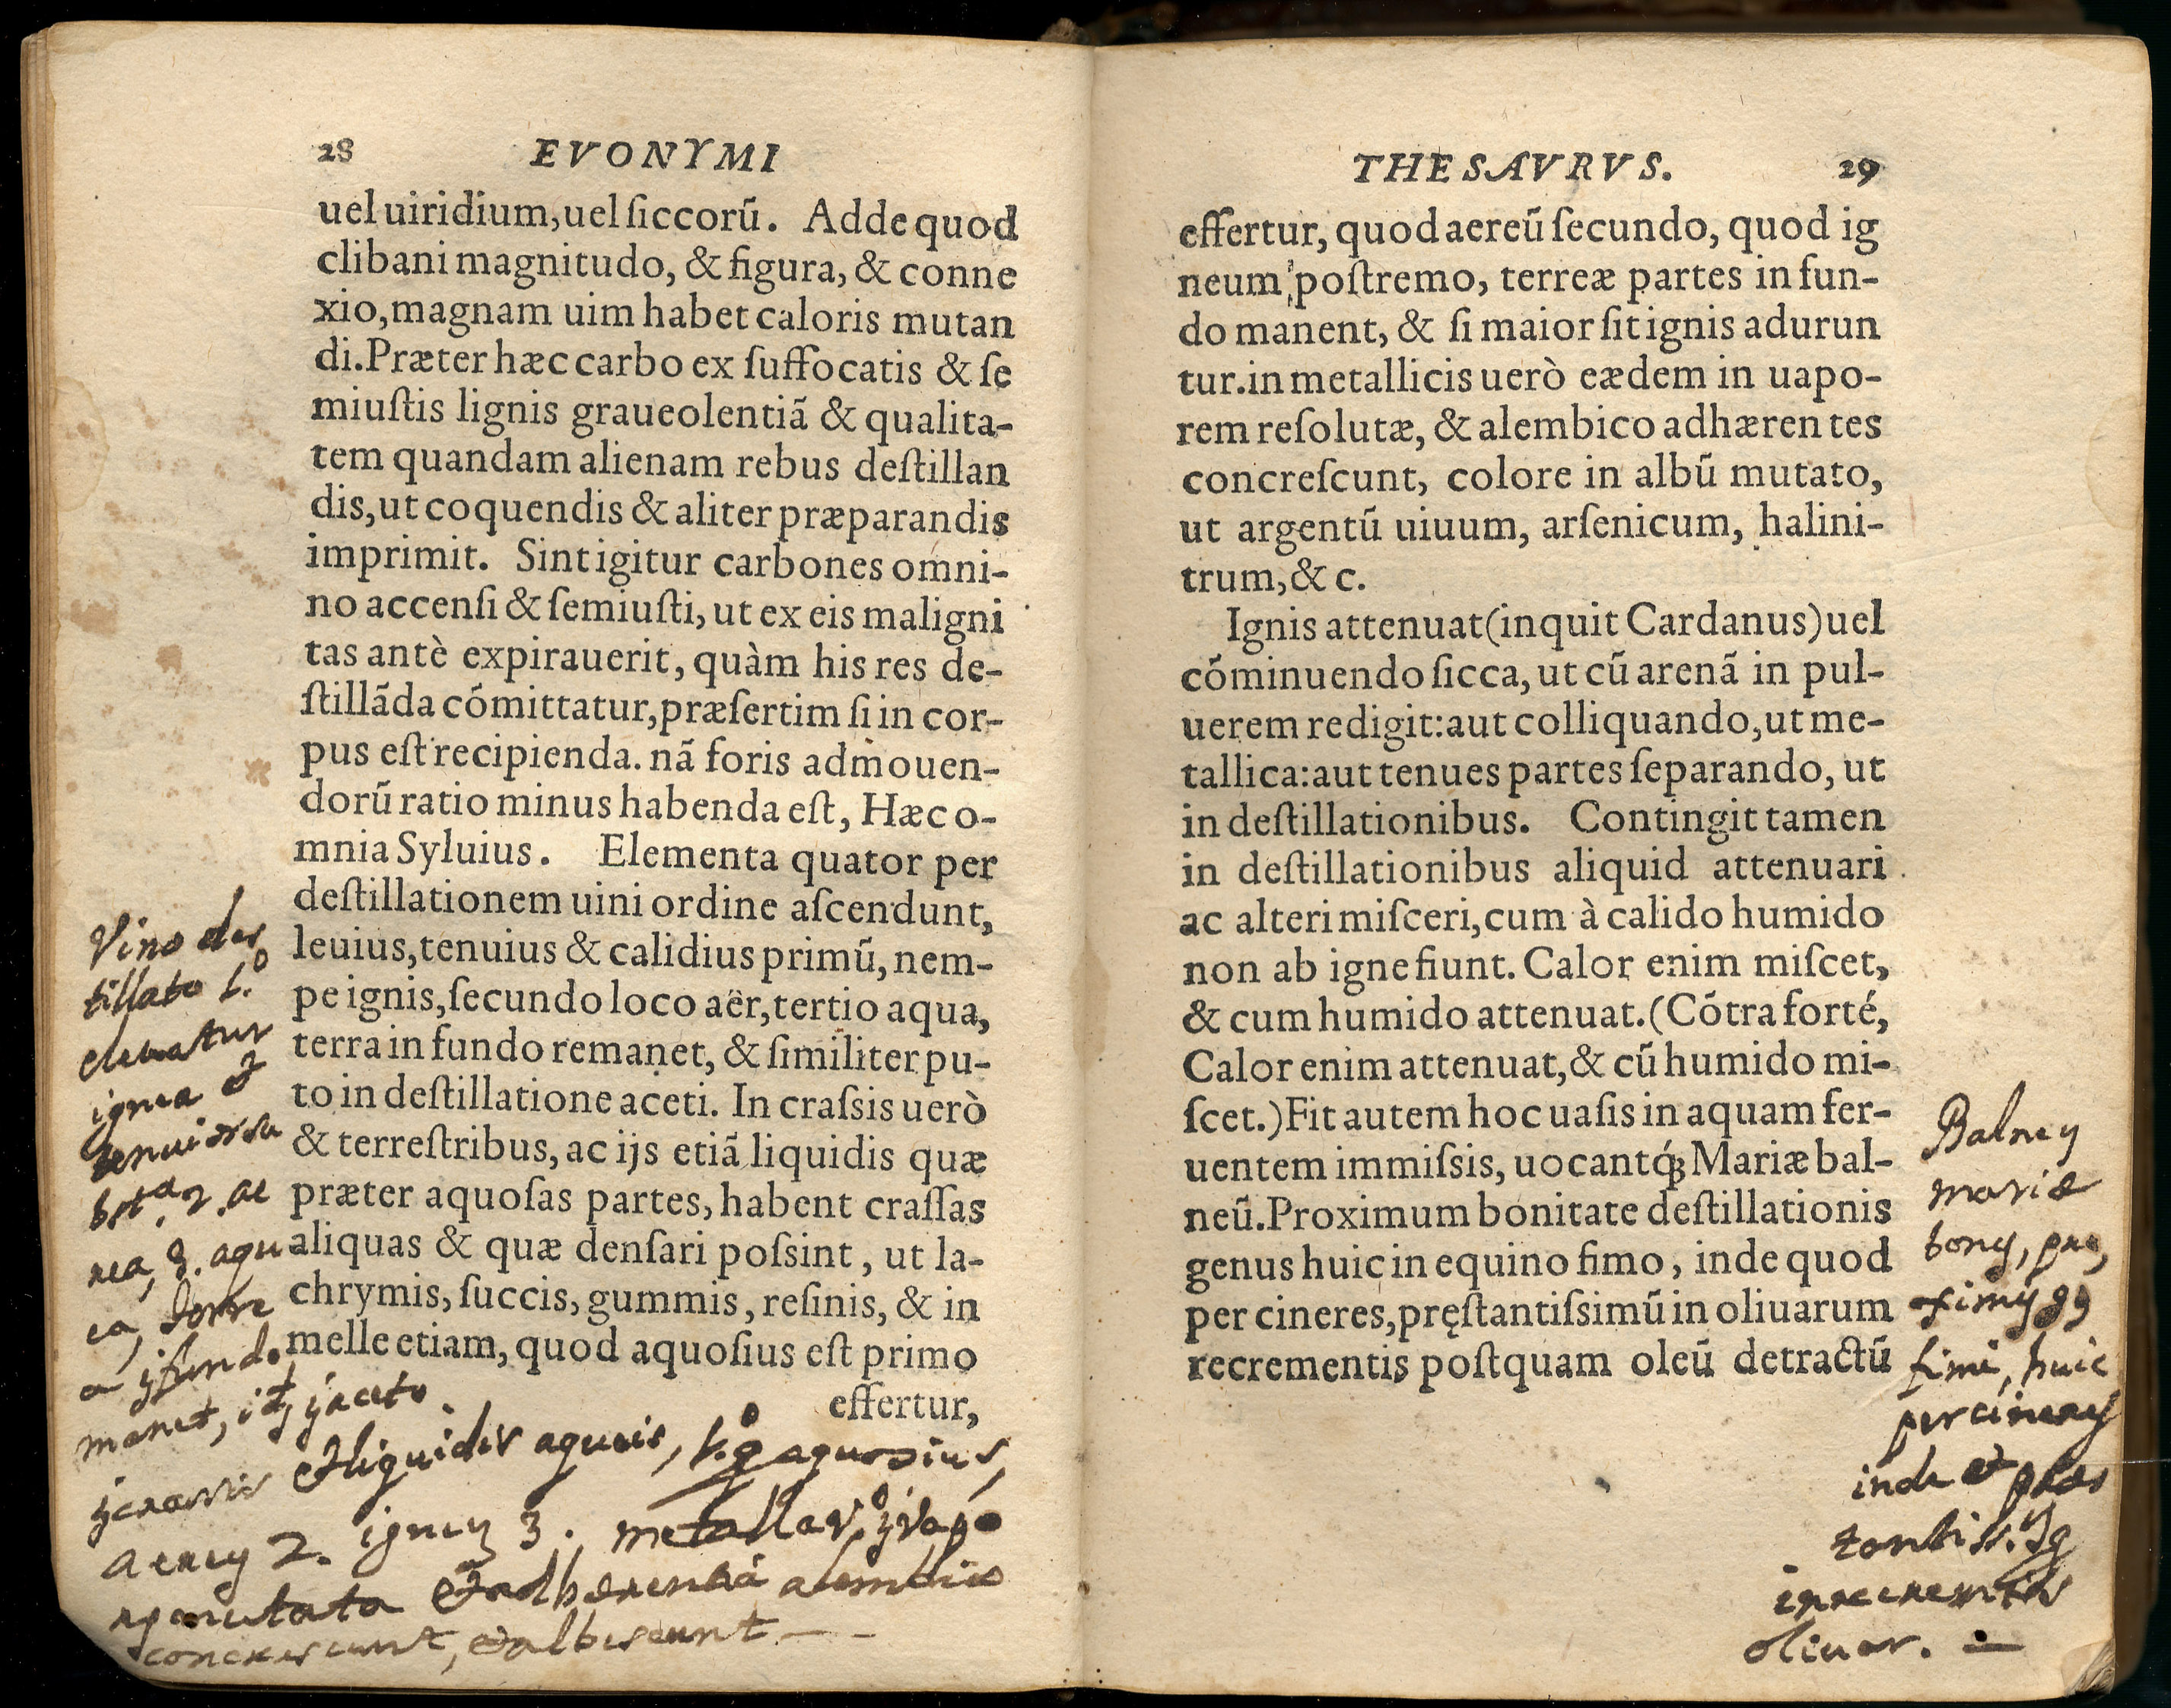 28 EVONYMI
uel uiridium, uel ſiccorũ. Adde quod
clibani magnitudo, & figura, & conne
xio, magnam uim habet caloris mutan
di. Præter hæc carbo ex ſuffocatis & ſe
miuſtis lignis graueolentiã & qualita-
tem quandam alienam rebus deſtillan
dis, ut coquendis & aliter præparandis
imprimit. Sint igitur carbones omni-
no accenſi & ſemiuſti, ut ex eis maligni
tas antè expirauerit, quàm his res de-
ſtillãda cõmittatur, præſertim ſi in cor-
pus eſt recipienda. nã foris admouen-
dorũ ratio minus habenda eſt, Hæc o-
mnia Syluius. Elementa quator per
deſtillationem uini ordine aſcendunt,
leuius, tenuius & calidius primũ, nem-
pe ignis, ſecundo loco aër, tertio aqua,
terra in fundo remanet, & ſimiliter pu-
to in deſtillatione aceti. In craſsis uerò
& terreſtribus, ac ijs etiã liquidis quæ
præter aquoſas partes, habent craſſas
aliquas & quæ denſari poſsint, ut la-
chrymis, ſuccis, gummis, reſinis, & in
melle etiam, quod aquoſius eſt primo
effertur,
Vino des
tillato 1.o
eleuatur
ignea et
tenuior su
2. ae
rea, 3. aqu
ea, terre
a fundo
manet, aceto
et liquidis aqueis, aquosius,
2. 3. metalla
mutata et adherentia alembico
concrescunt, et albescunt — —
THESAVRVS. 29
effertur, quod aereũ ſecundo, quod ig
neum poſtremo, terreæ partes in fun-
do manent, & ſi maior ſit ignis adurun
tur. in metallicis uerò eædem in uapo-
rem reſolutæ, & alembico adhæren tes
concreſcunt, colore in albũ mutato,
ut argentũ uiuum, arſenicum, halini-
trum, & c.
Ignis attenuat (inquit Cardanus) uel
cõminuendo ſicca, ut cũ arenã in pul-
uerem redigit: aut colliquando, ut me-
tallica: aut tenues partes ſeparando, ut
in deſtillationibus. Contingit tamen
in deſtillationibus aliquid attenuari
ac alteri miſceri, cum à calido humido
non ab igne fiunt. Calor enim miſcet,
& cum humido attenuat. (Cõtra forté,
Calor enim attenuat, & cũ humido mi-
ſcet.) Fit autem hoc uaſis in aquam fer-
uentem immiſsis, uocantq́ꝫ Mariæ bal-
neũ. Proximum bonitate deſtillationis
genus huic in equino fimo, inde quod
per cineres, pręſtantiſsimũ in oliuarum
recrementis poſtquam oleũ detractũ
mariæ
fimi, huic
per
inde et præs
recrementis
oliuar. —